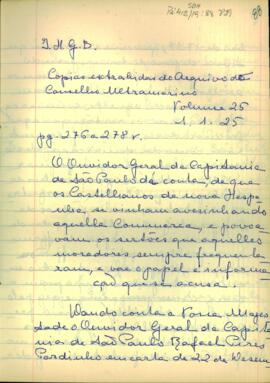 SDH
Pi 412/19:88 P21
88
I. H. G. B.
Copias extrahidas do Arquivo do
Conselho Ultramarino
Volume 25
1.1.25
pg. 276 a 278 v.
O Ouvidor Geral da Capitania
de São Paulo dá conta, de que
os Castelhanos de nova Hespa-
nha, se vinham avesinhando
aquella Commarca, e povoa-
vam os sertões que aquelles
moradores sempre frequenta-
ram, e vae o papel e informa-
ção que se acusa.
Dando conta a Vossa Mages-
tade o Ouvidor Geral da Capita-
nia de São Paulo Rafael Pires
Pardinho em carta de 22 de Dezem